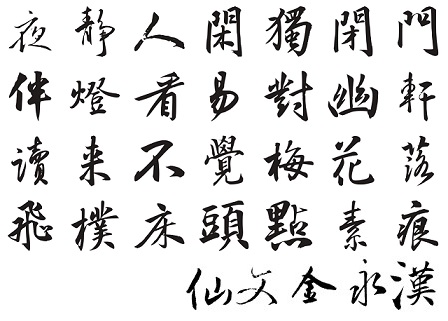 夜靜人閑獨閉門
伴燈看易對幽軒
讀来不覺梅花落
飛樸床頭點素痕
仙文金永漢